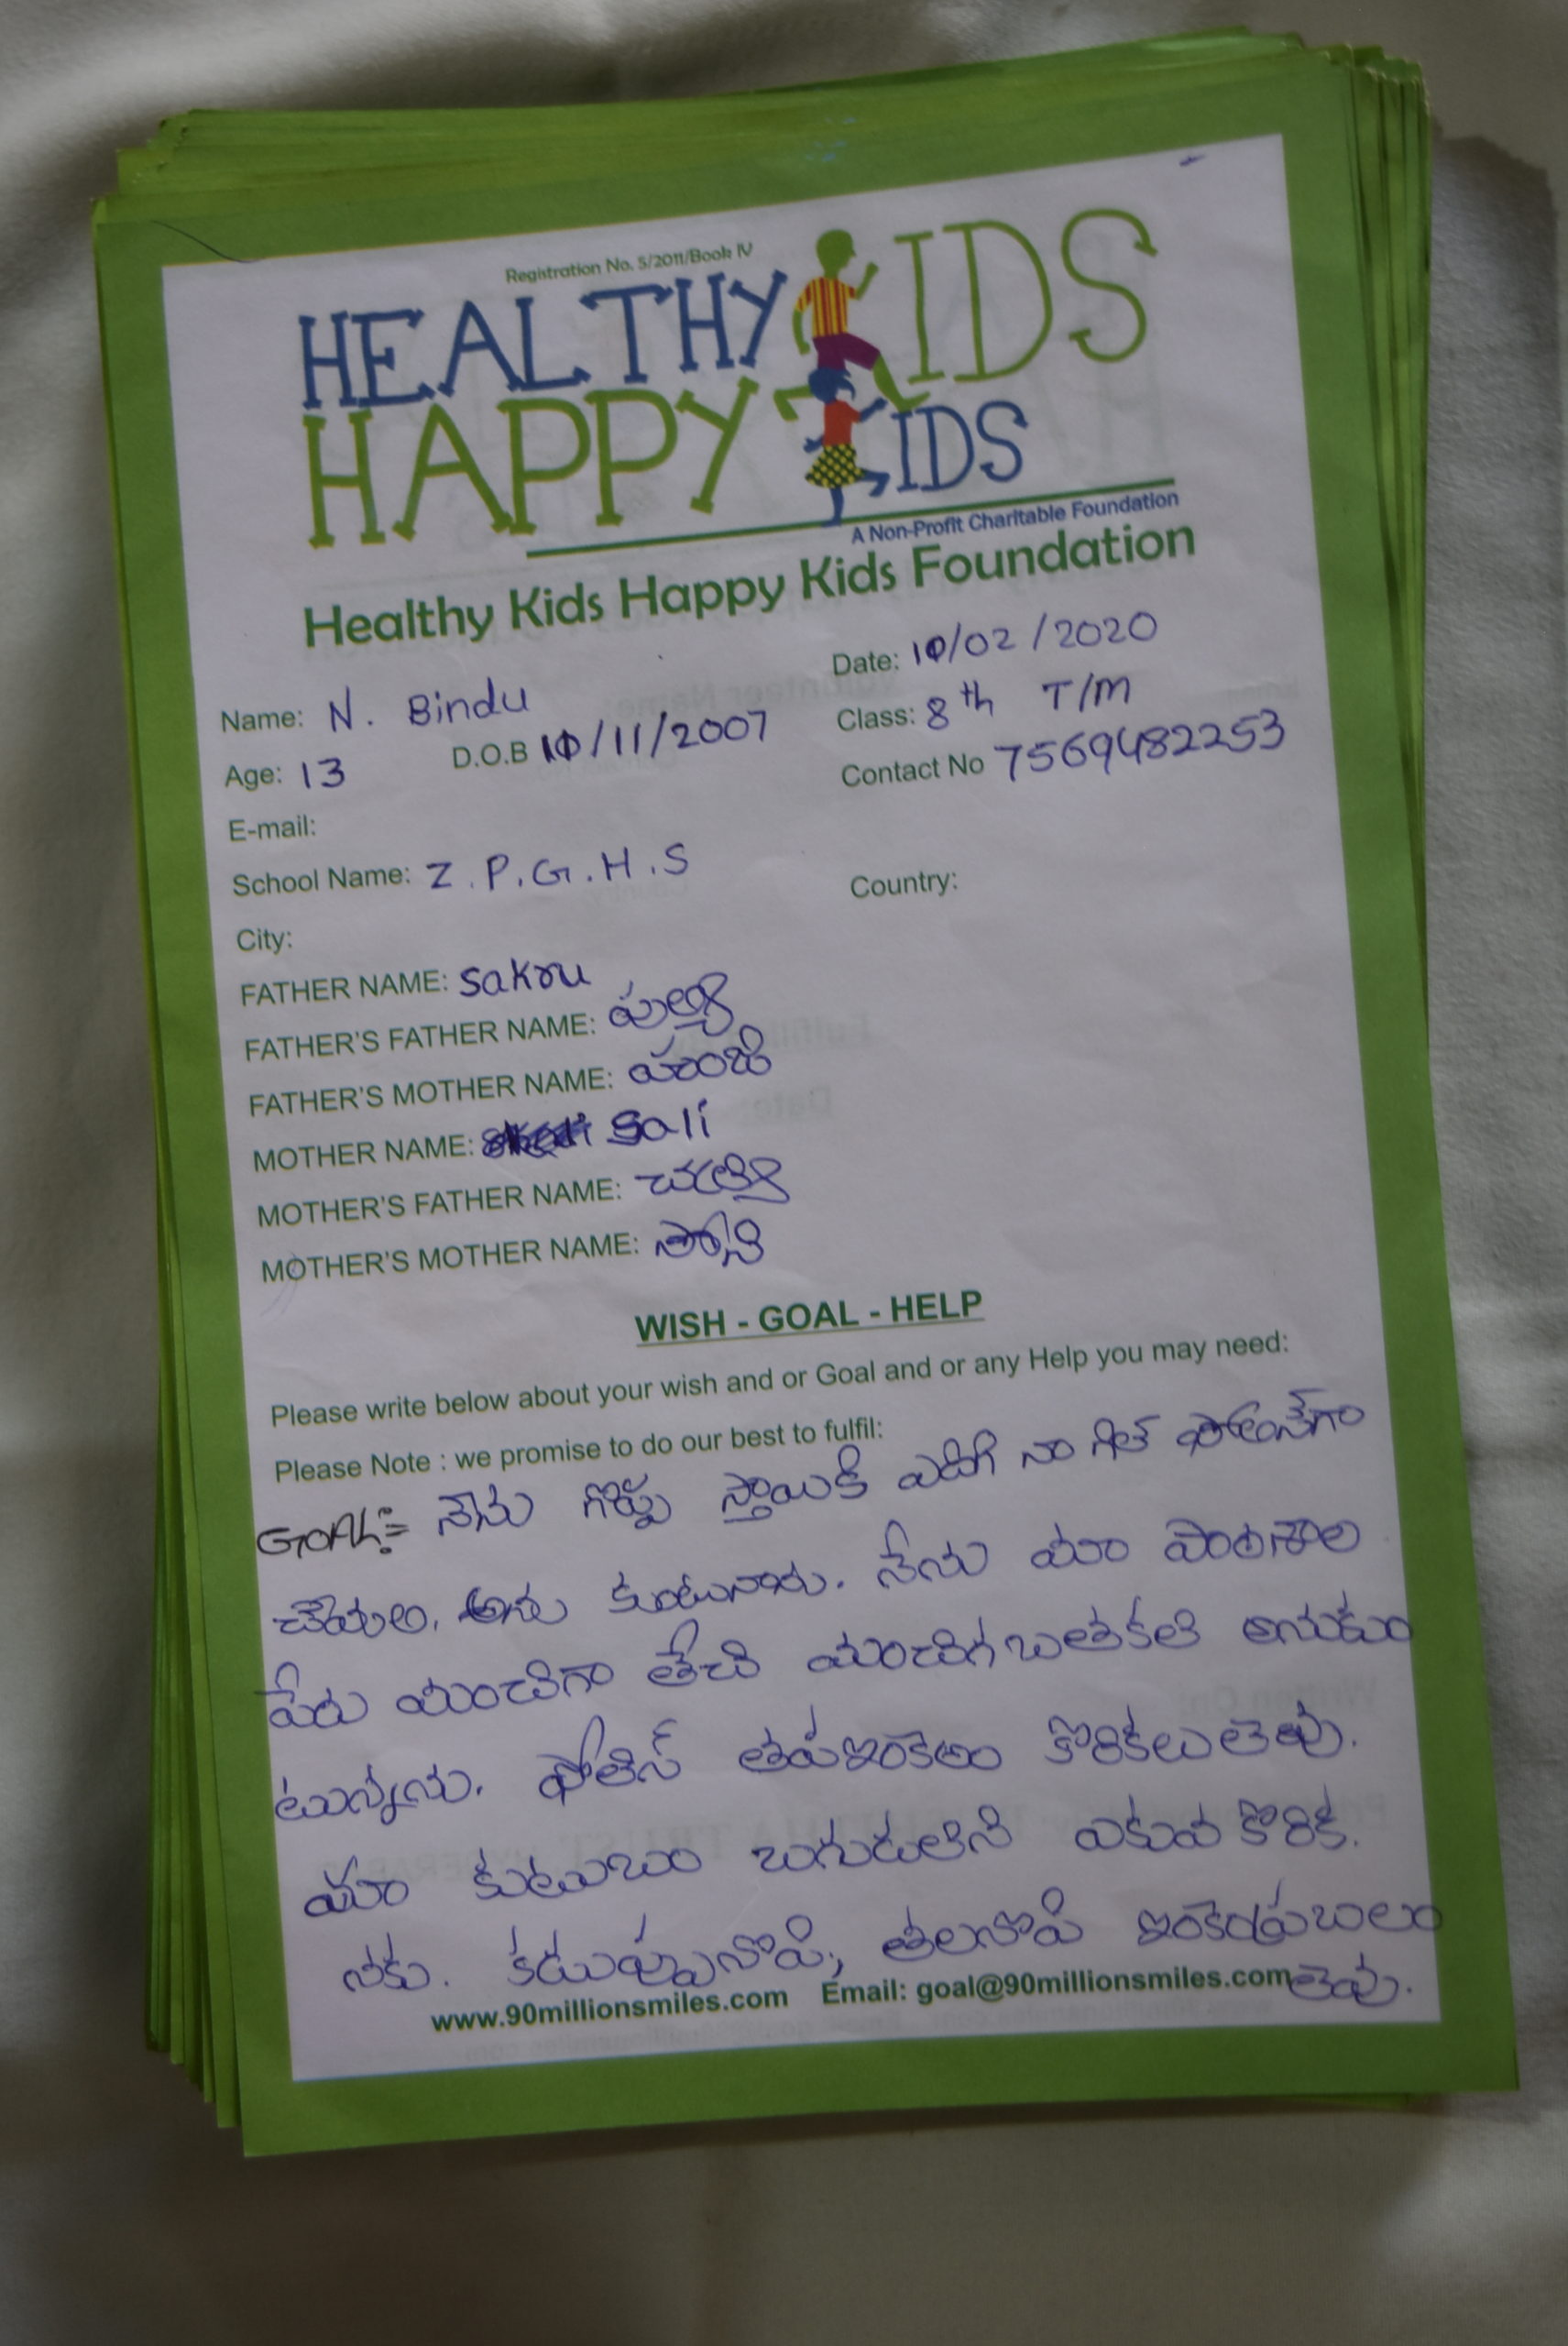 Registration No. 5/2011/Book IV
HEALTHY KIDS
HAPPY KIDS
A Non-Profit Charitable Foundation
Healthy Kids Happy Kids Foundation
Date: 10/02/2020
Name: N. Bindu
Class: 8th T/M
Age: 13 D.O.B 10/11/2007
Contact No 7569482253
E-mail:
School Name: Z.P.G.H.S
Country:
City:
FATHER NAME: Sakru
FATHER'S FATHER NAME:
FATHER'S MOTHER NAME:
MOTHER NAME: Sali
MOTHER'S FATHER NAME:
MOTHER'S MOTHER NAME:
WISH - GOAL - HELP
Please write below about your wish and or Goal and or any Help you may need:
Please Note : we promise to do our best to fulfil:
GOAL:= నేను గొప్ప స్తాయికి ఎదిగి నా
అను కుంటునాను. నేను మా పాఠశాల
పేరు మంచిగా తేచి మంచిగ బతకలి అనుకుం
టున్నేను. పోలిస్ కొరికలు లెవు.
మా కుటుబం బగుడలిని ఎకువ కొరిక.
నకు. కడుపునొపి, తలనొపి
లెవు.
www.90millionsmiles.com Email: goal@90millionsmiles.com